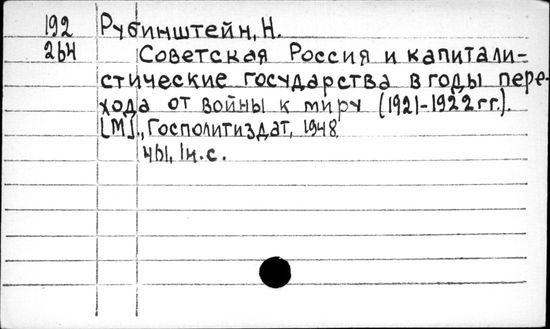 192 Рубинштейн, Н.
264 Советская Россия и капитали-
стические государства в годы пере-
хода от войны к миру (1921-1922 гг.).
[М]., Госполитиздат, 1948
461, 1н.с.